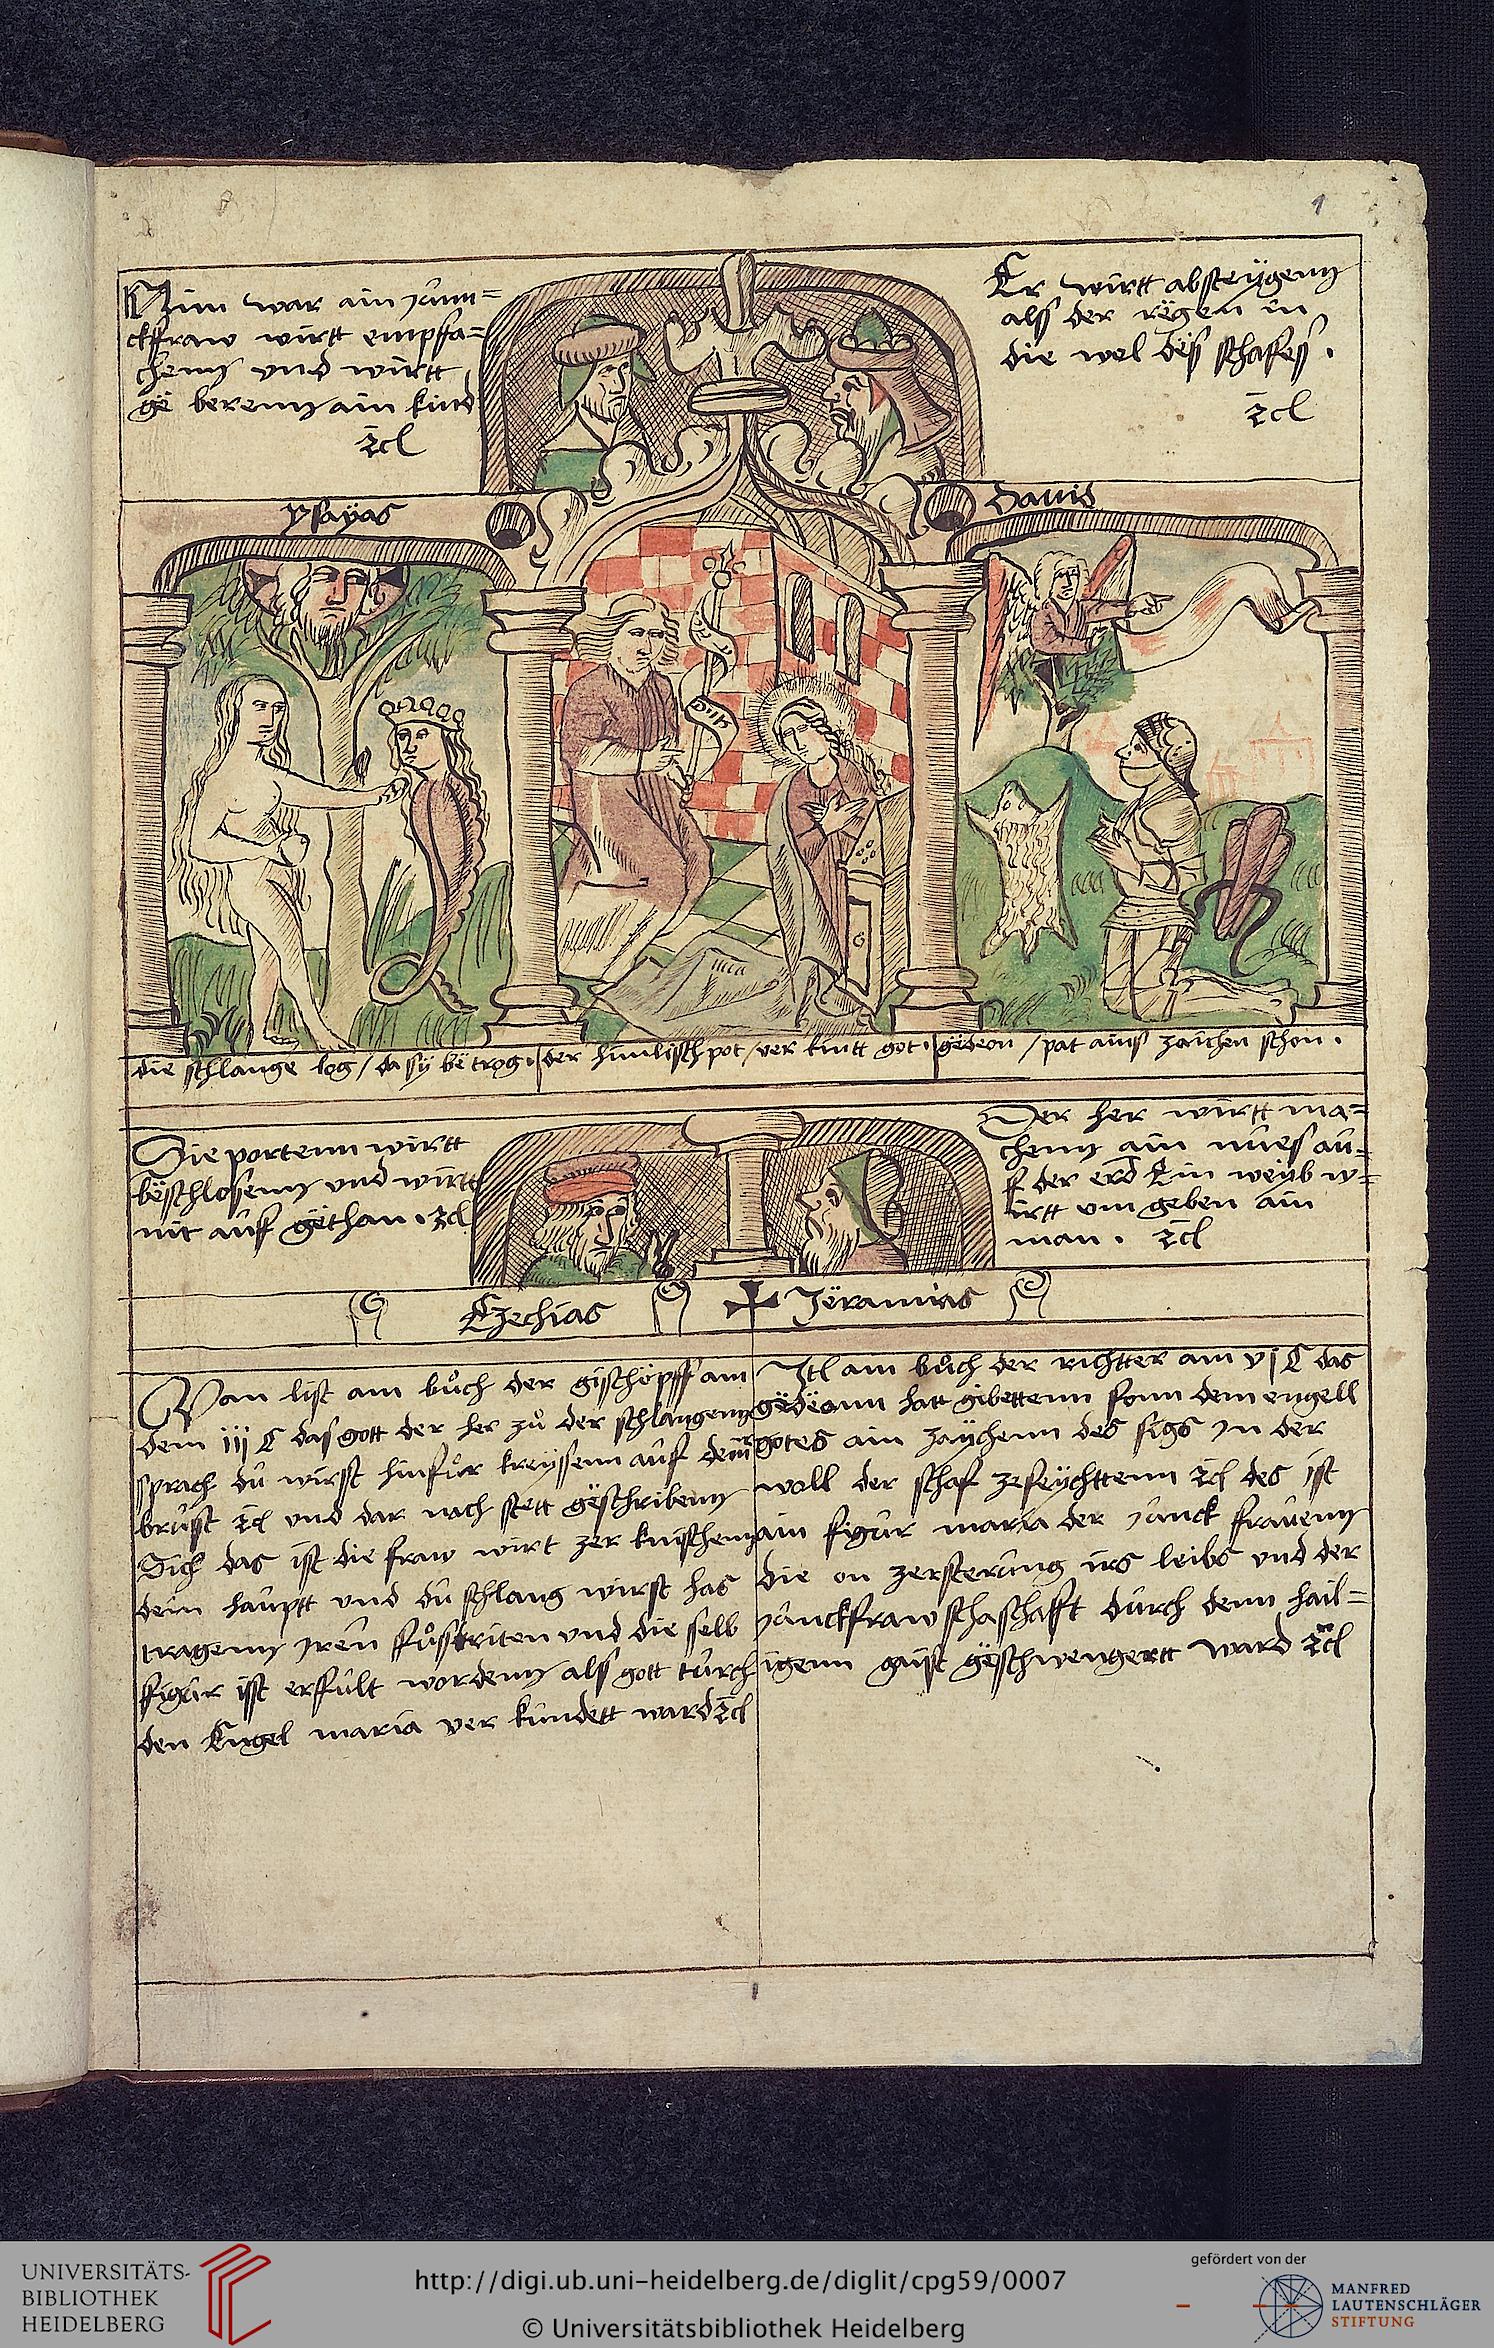 1
Nim war ain jůnn=
ckfraw wirtt empfa=
henn vnd wirtt
ge berenn ain kind
ꝛcl
Er wirtt absteÿgenn
alß der regen in
die wel deß schafeß .
ꝛcl
ysaÿas
Dauid
die schlange log / da sÿ betrog .
der himlisch pot / ver kintt got .
gedeon / pat ainß zaichen schon .
Die portenn wirtt
beschlosenn vnd wirtt
nit auf gethan . ꝛcl
Der her wirtt ma=
chenn ain nůeß aů=
f der erd Ein weÿb w=
irtt vm geben ain
man . ꝛcl
Ezechias
Jeramias
Man list am bůch der gischöpff am
dem iij C das gott der her zů der schlangenn
sprach dů wirst hinfůr kreÿssenn auf deinr
brůst ꝛcl vnd dar nach stett geschribenn
Sich das ist die fraw wirt zer knischenn
dein haůptt vnd dů schlang wirst has
tragenn jren fůßtriten vnd die selb
figůr ist erfůlt wordenn alß gott důrch
den Engel maria ver kůndett ward ꝛcl
Itl am bůch der richtter am vj C das
gedeonn hatt gibettenn fonn dem engell
gotes ain zaÿchenn des sigs jn der
woll der schaf zefeÿchttenn ꝛcl des ist
ain figůr maria der jůnck fraůenn
die on zersterůng irs leibs vnd der
jůnckfrawschaschafft důrch denn hail=
igenn gaist geschwengertt ward ꝛcl
UNIVERSITÄTS-
BIBLIOTHEK
HEIDELBERG
http://digi.ub.uni-heidelberg.de/diglit/cpg59/0007
© Universitätsbibliothek Heidelberg
gefördert von der
MANFRED
LAUTENSCHLÄGER
STIFTUNG